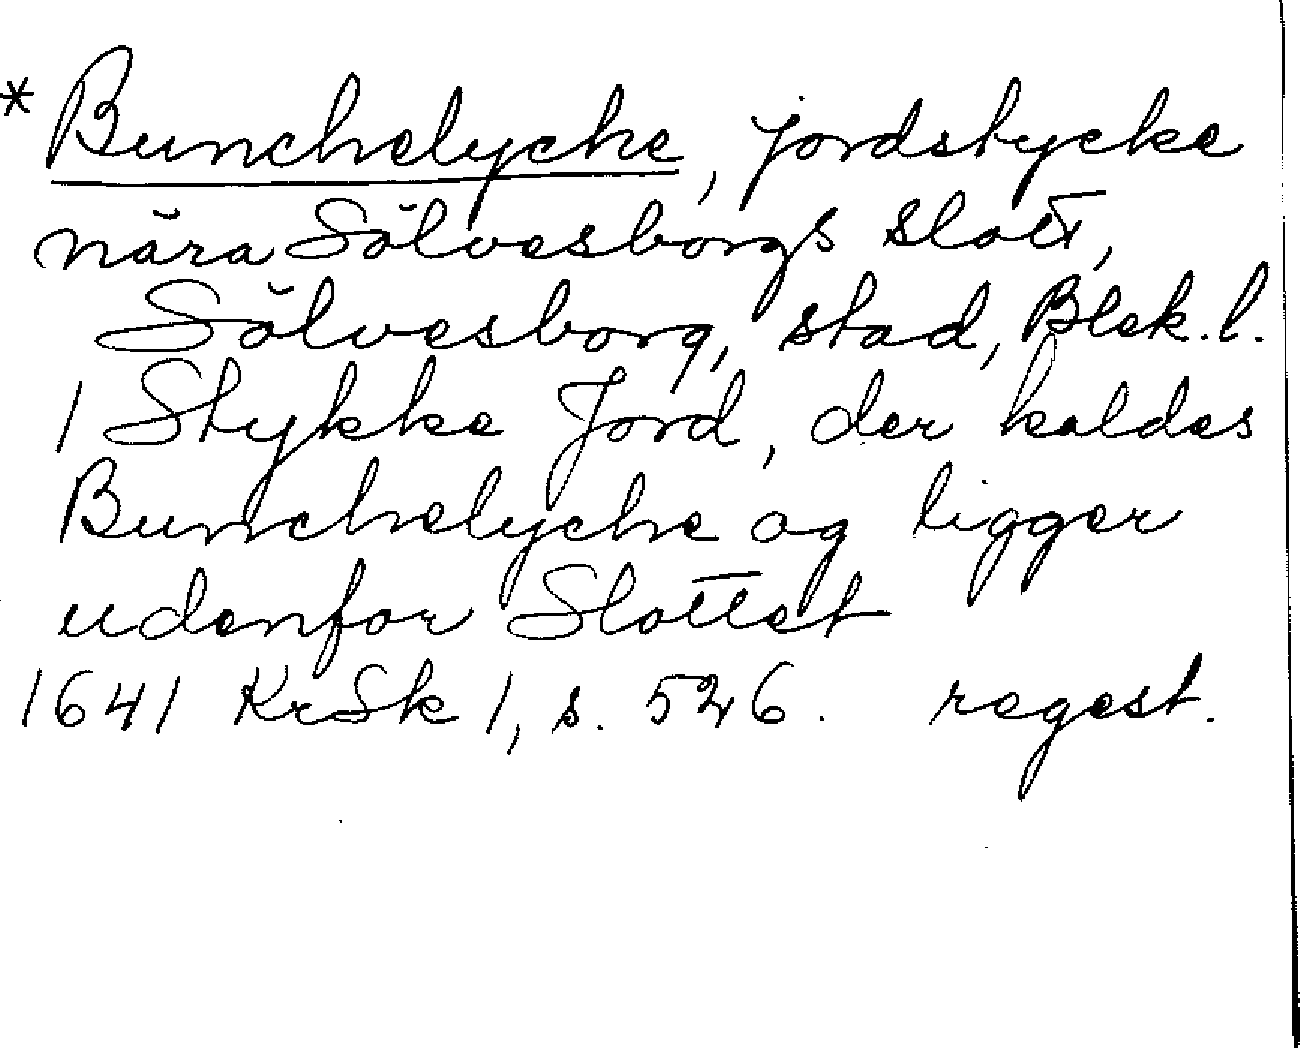 * Bunchelyche, jordstycke
nära Sölvesborgs slott,
Sölvesborg, stad, Blek. l.
1 Stykke Jord, der kaldes
Bunchelyche og ligger
udenfor Slottet
1641 KrSk 1, s. 526. regest.